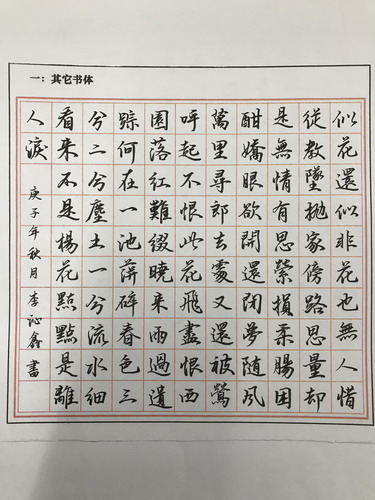 一：其它书体
似花還似非花也無人惜
從教墜抛家傍路思量却
是無情有思縈損柔腸困
酣嬌眼欲開還閉夢随風
萬里尋郎去處又還被鶯
呼起不恨此花飛盡恨西
園落紅難綴曉来雨過遺
踪何在一池萍碎春色三
分二分塵土一分流水細
看来不是楊花點點是離
人淚
庚子年秋月李沁鑫書